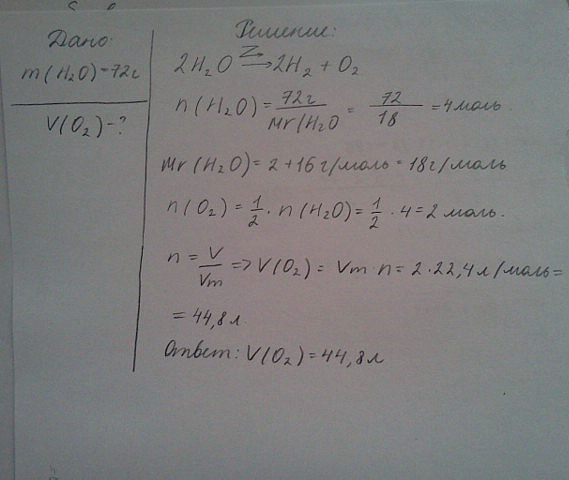 Дано:
m(H₂O)=72г
V(O₂)-?
Решение:
2H₂O → 2H₂ + O₂
n(H₂O) = 72г / Mr(H₂O = 72 / 18 = 4 моль.
Mr(H₂O) = 2 + 16 г/моль = 18 г/моль
n(O₂) = 1/2 · n(H₂O) = 1/2 · 4 = 2 моль.
n = V / Vm => V(O₂) = Vm · n = 2 · 22,4 л/моль =
= 44,8 л.
Ответ: V(O₂) = 44,8 л